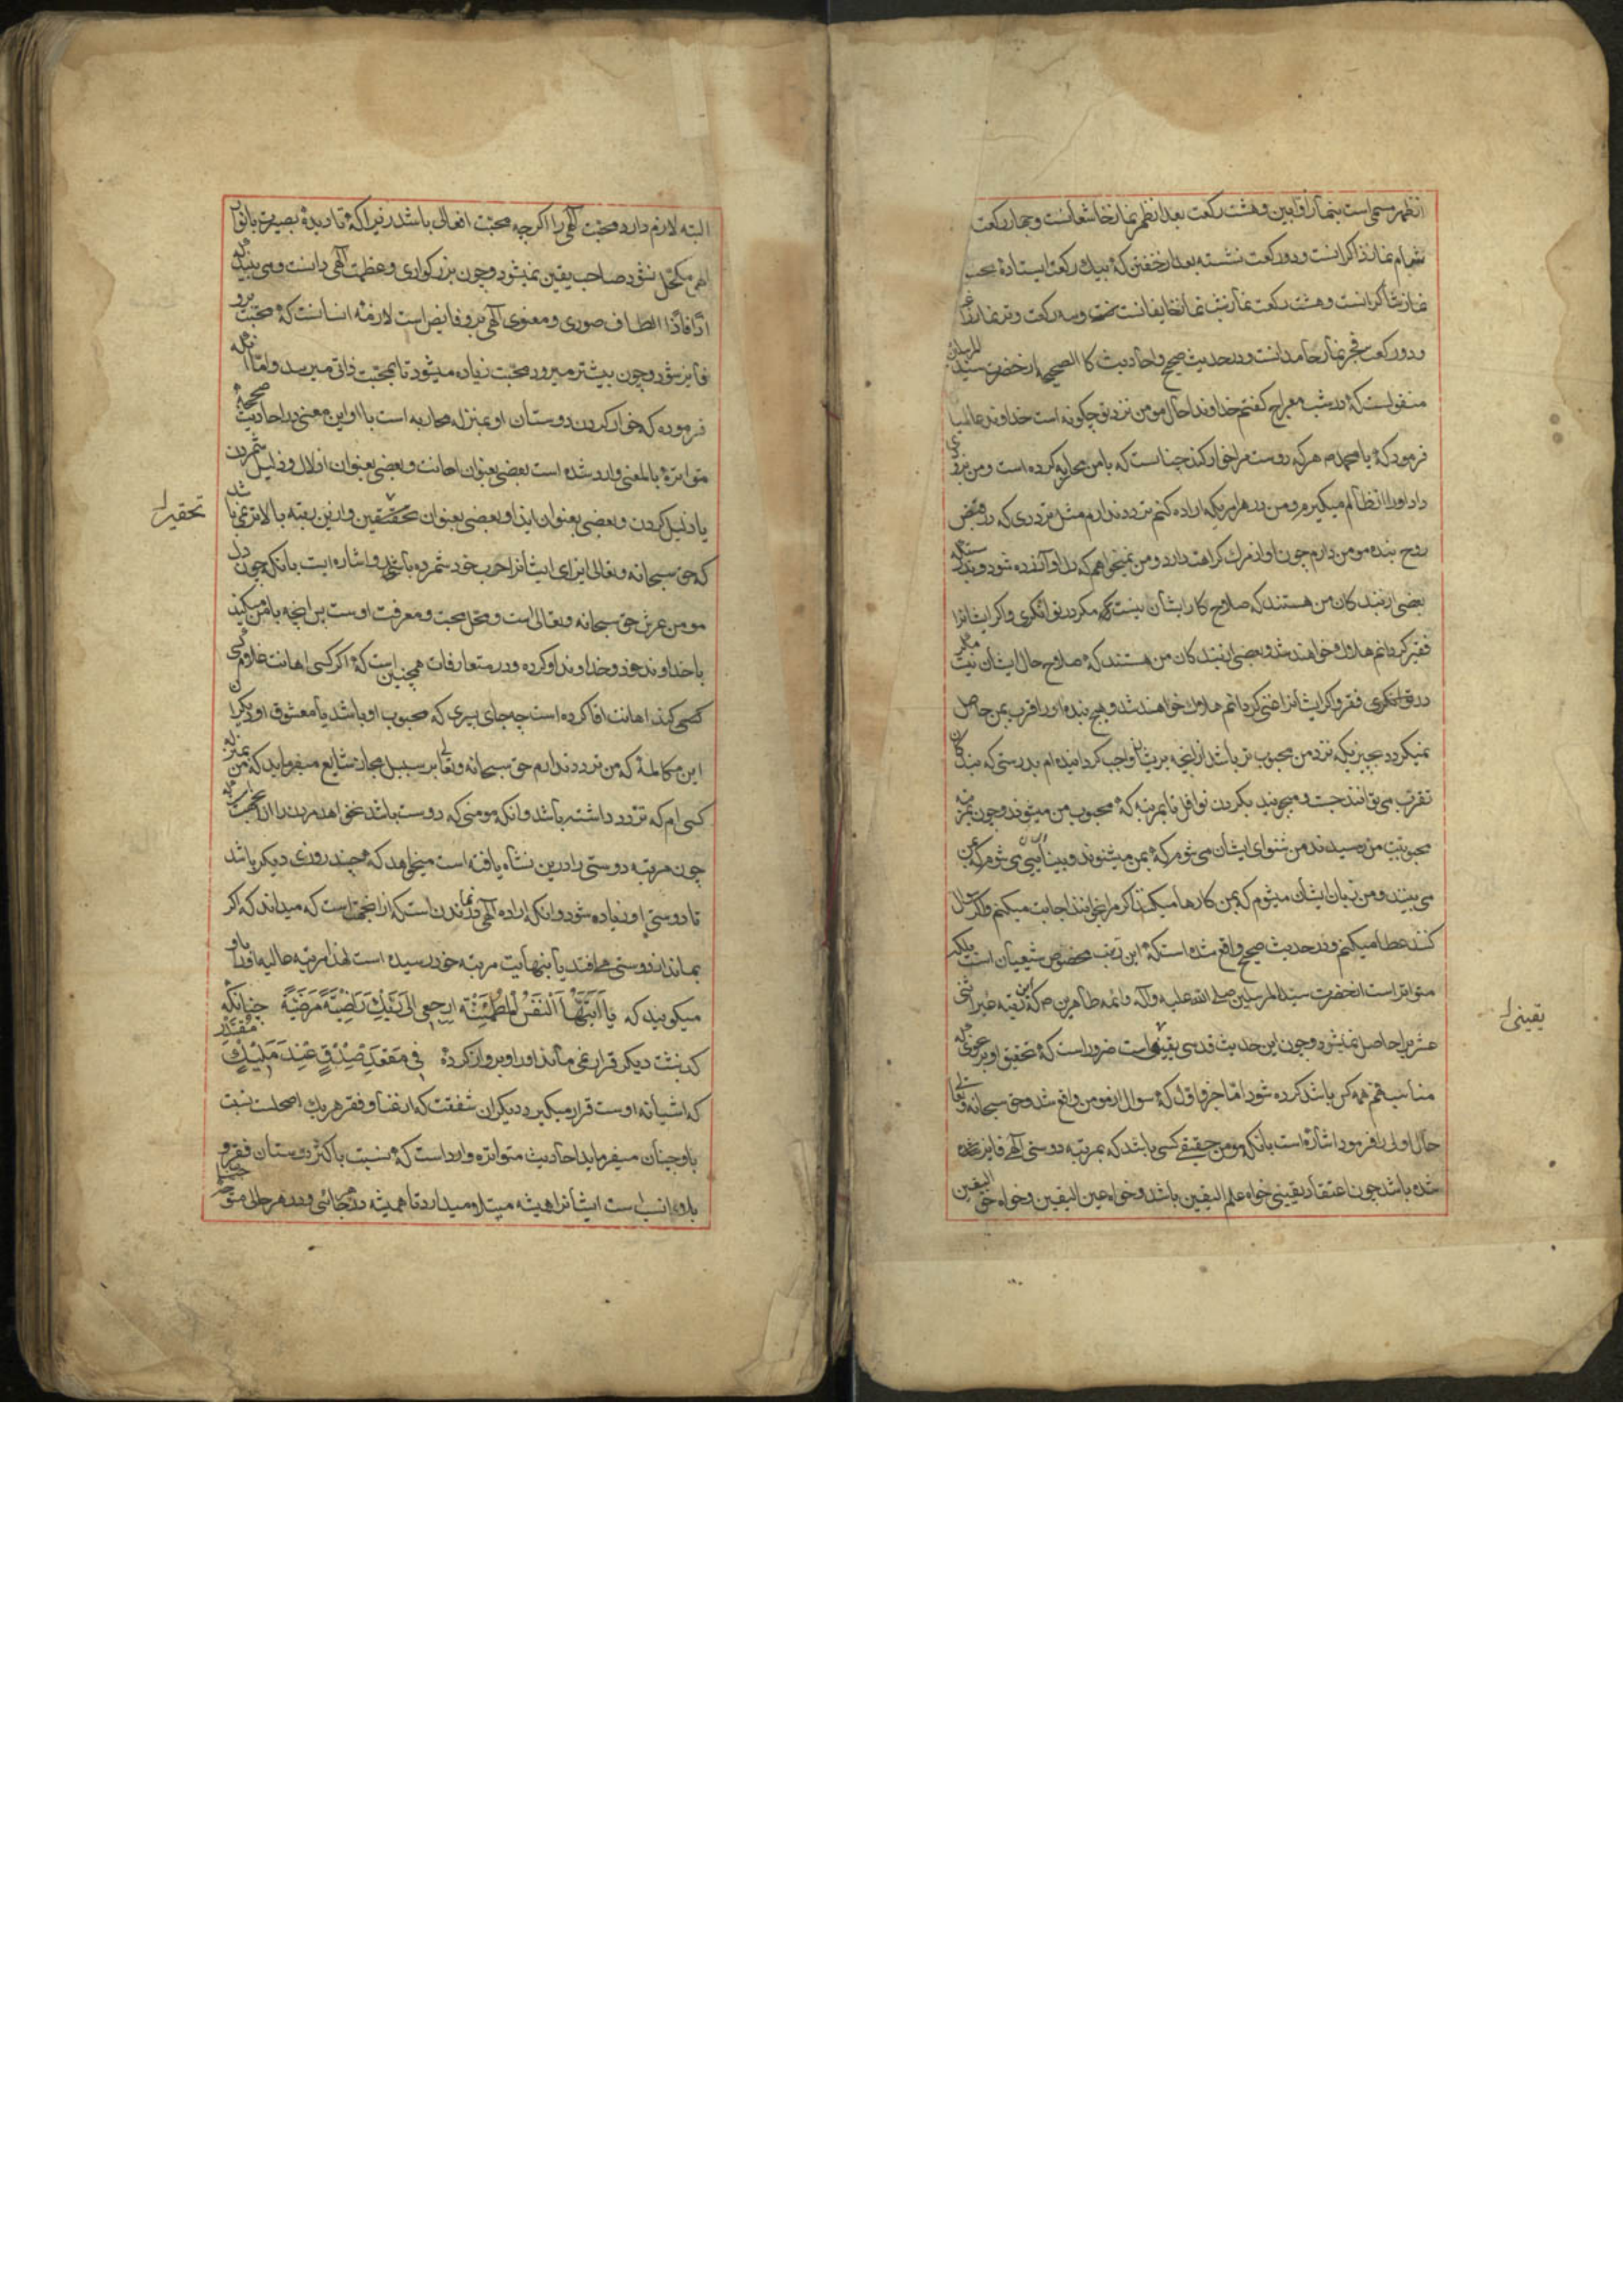 از ظهر مسمی است بنماز اوابین و هشت رکعت بعد از ظهر نماز خاشعانست و چهار رکعت
شام نماز ذاکرانست و دو رکعت نشسته بعد از خفتن که بیك رکعت ایستاده
نماز شاکرانست و هشت رکعت نماز شب نماز خایفانست و سه رکعت وتر نماز
و دو رکعت فجر نماز حامدانست و در حدیث صحیح و احادیث کا الصحیح از حضرت سید المرسلین
منقولست که در شب معراج کفتم خداوندا حال مومن نزد تو چکونه است خداوند عالمیا
فرمود که یا محمد هر که دوست مرا خوار کند چنانست که با من محاربه کرده است و من بزودی
داد او را از ظالم میکیرم و من در هر امریکه اراده کنم تردد ندارم مثل ترددی که در قبض
روح بنده مومن دارم چون او از مرك کراهت دارد و من نمیخواهم که دل او آزرده شود و بدرستیکه
بعضی از بندکان من هستند که صلاح کار ایشان نیست مکر در توانکری و اکر ایشانرا
فقیر کردانم هلاك خواهند شد و بعضی از بندکان من هستند که صلاح حال ایشان نیست مکر
در فقر و اکر ایشانرا غنی کردانم هلاك خواهند شد و هیچ بنده اورا قرب بمن حاصل
نمیکردد بچیزیکه نزد من محبوب تر باشد از آنچه بریشان واجب کردانیده ام بدرستی که بندکان
تقرب می توانند جست و میجویند بکردن نوافل تا بمرتبه که محبوب من میشوند و چون بمرتبه
محبوبیت من رسیدند من شنوای ایشان می شوم که بمن میشنوند و بینائی ایشان می شوم که بمن
می بینند و من زبان ایشان میشوم که بمن کارها میکنند اکر مرا بخوانند اجابت میکنم و اکر سوال
کنند عطا میکنم و در حدیث صحیح واقع شده است که این مخصوص شیعیان است بلکه
متواتر است از حضرت سید المرسلین صلی الله علیه وآله وائمه طاهرین که این رتبه غیر اثنی
عشریرا حاصل نمیشود و چون این حدیث قدسی یقینی است ضرور است که تحقیق او بر نحوی که
مناسب فهم همه کس باشد کرده شود اما جزو اول که سوال از مومن واقع شد و حق سبحانه وتعالی
حال اولی را فرمود اشاره است بانکه مومن حقیقی کسی باشد که بمرتبه دوستی آلهی فایز
شده باشد چون اعتقاد یقینی خواه علم الیقین باشد و خواه عین الیقین و خواه حق الیقین
یقینی
البته لازم دارد محبت آلهی را اکر چه محبت افعالی باشد زیرا که تا دیدۀ بصیرت بانوار
الهی مکحل نشود صاحب یقین نمیشود و چون بزرکواری و عظمت آلهی دانست و می بیند که
انا فانا الطاف صوری و معنوی آلهی برو فایض است لازمه انسانست که محبت برو
فایز شود و چون بیشتر میرود محبت زیاده میشود تا بمحبت ذاتی میرسد و اما آنکه
فرموده که خوار کردن دوستان او بمنزله محاربه است با او این معنی در احادیث صحیحه
متواترۀ بالمعنی وارد شده است بعضی بعنوان اهانت و بعضی بعنوان اذلال و ذلیل شمردن
یا ذلیل کردن و بعضی بعنوان ایذا و بعضی بعنوان تحقیر و ازین رتبه بالاتر نمی باشد
تحقیر
که حق سبحانه وتعالی ایذای ایشانرا حرب خود شمرده باشد و اشاره ایست بانکه چون دل
مومن عرش حق سبحانه وتعالی است و محل محبت و معرفت اوست پس آنچه با مومن میکنند
با خداوند خود و خداوند او کرده و در متعارفات همچنین است که اکر کسی اهانت غلام
کسی کند اهانت اقا کرده است چه جای پیری که محبوب او باشد یا معشوق او دیکر
این مکالمۀ که من تردد ندارم حق سبحانه وتعالی بر سبیل مجاز شایع میفرماید که من بمنزله
کسی ام که تردد داشته باشد و انکه مومنی که دوست باشد نخواهد مردن را
چون مرتبه دوستی را درین نشاه یافته است میخواهد که چند روزی دیکر باشد
تا دوستی او زیاده شود و انکه اراده آلهی در نماندن است که ازانجهت است که میداند که اکر
بماند از دوستی می افتد یا بنهایت مرتبه خود رسیده است لهذا مرتبه عالیه او را باو
میکویند که یَا اَیَّتُهَا اَلنَّفْسُ الْمُطْمَئِنَّة ارجعی الی رَبِّكِ رَاضِیَةً مَرْضِیَّةً چنانکه
کذشت دیکر قرار نمی ماند او را و پرواز کرده فی مَقْعَدِ صِدْقٍ عِنْدَ مَلِیْكٍ مُقْتَدِرٍ
که اشیانه اوست قرار میکیرد دیکر ان شفقت که از غنا و فقر هر یك اصلحست نسبت
باو چنان میفرماید احادیث متواتره وارد است که نسبت باکثر دوستان فقر و
بلا انسب است ایشانرا همیشه مبتلا میدارد تا همیشه در هر حالی متوجه